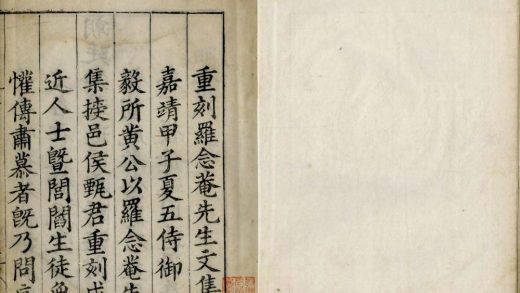 重刻羅念菴先生文集
嘉靖甲子夏五侍御
毅所黄公以羅念菴先
集授邑侯甄君重刻成
近人士曁閭閻生徒
懽傳肅慕者旣乃問